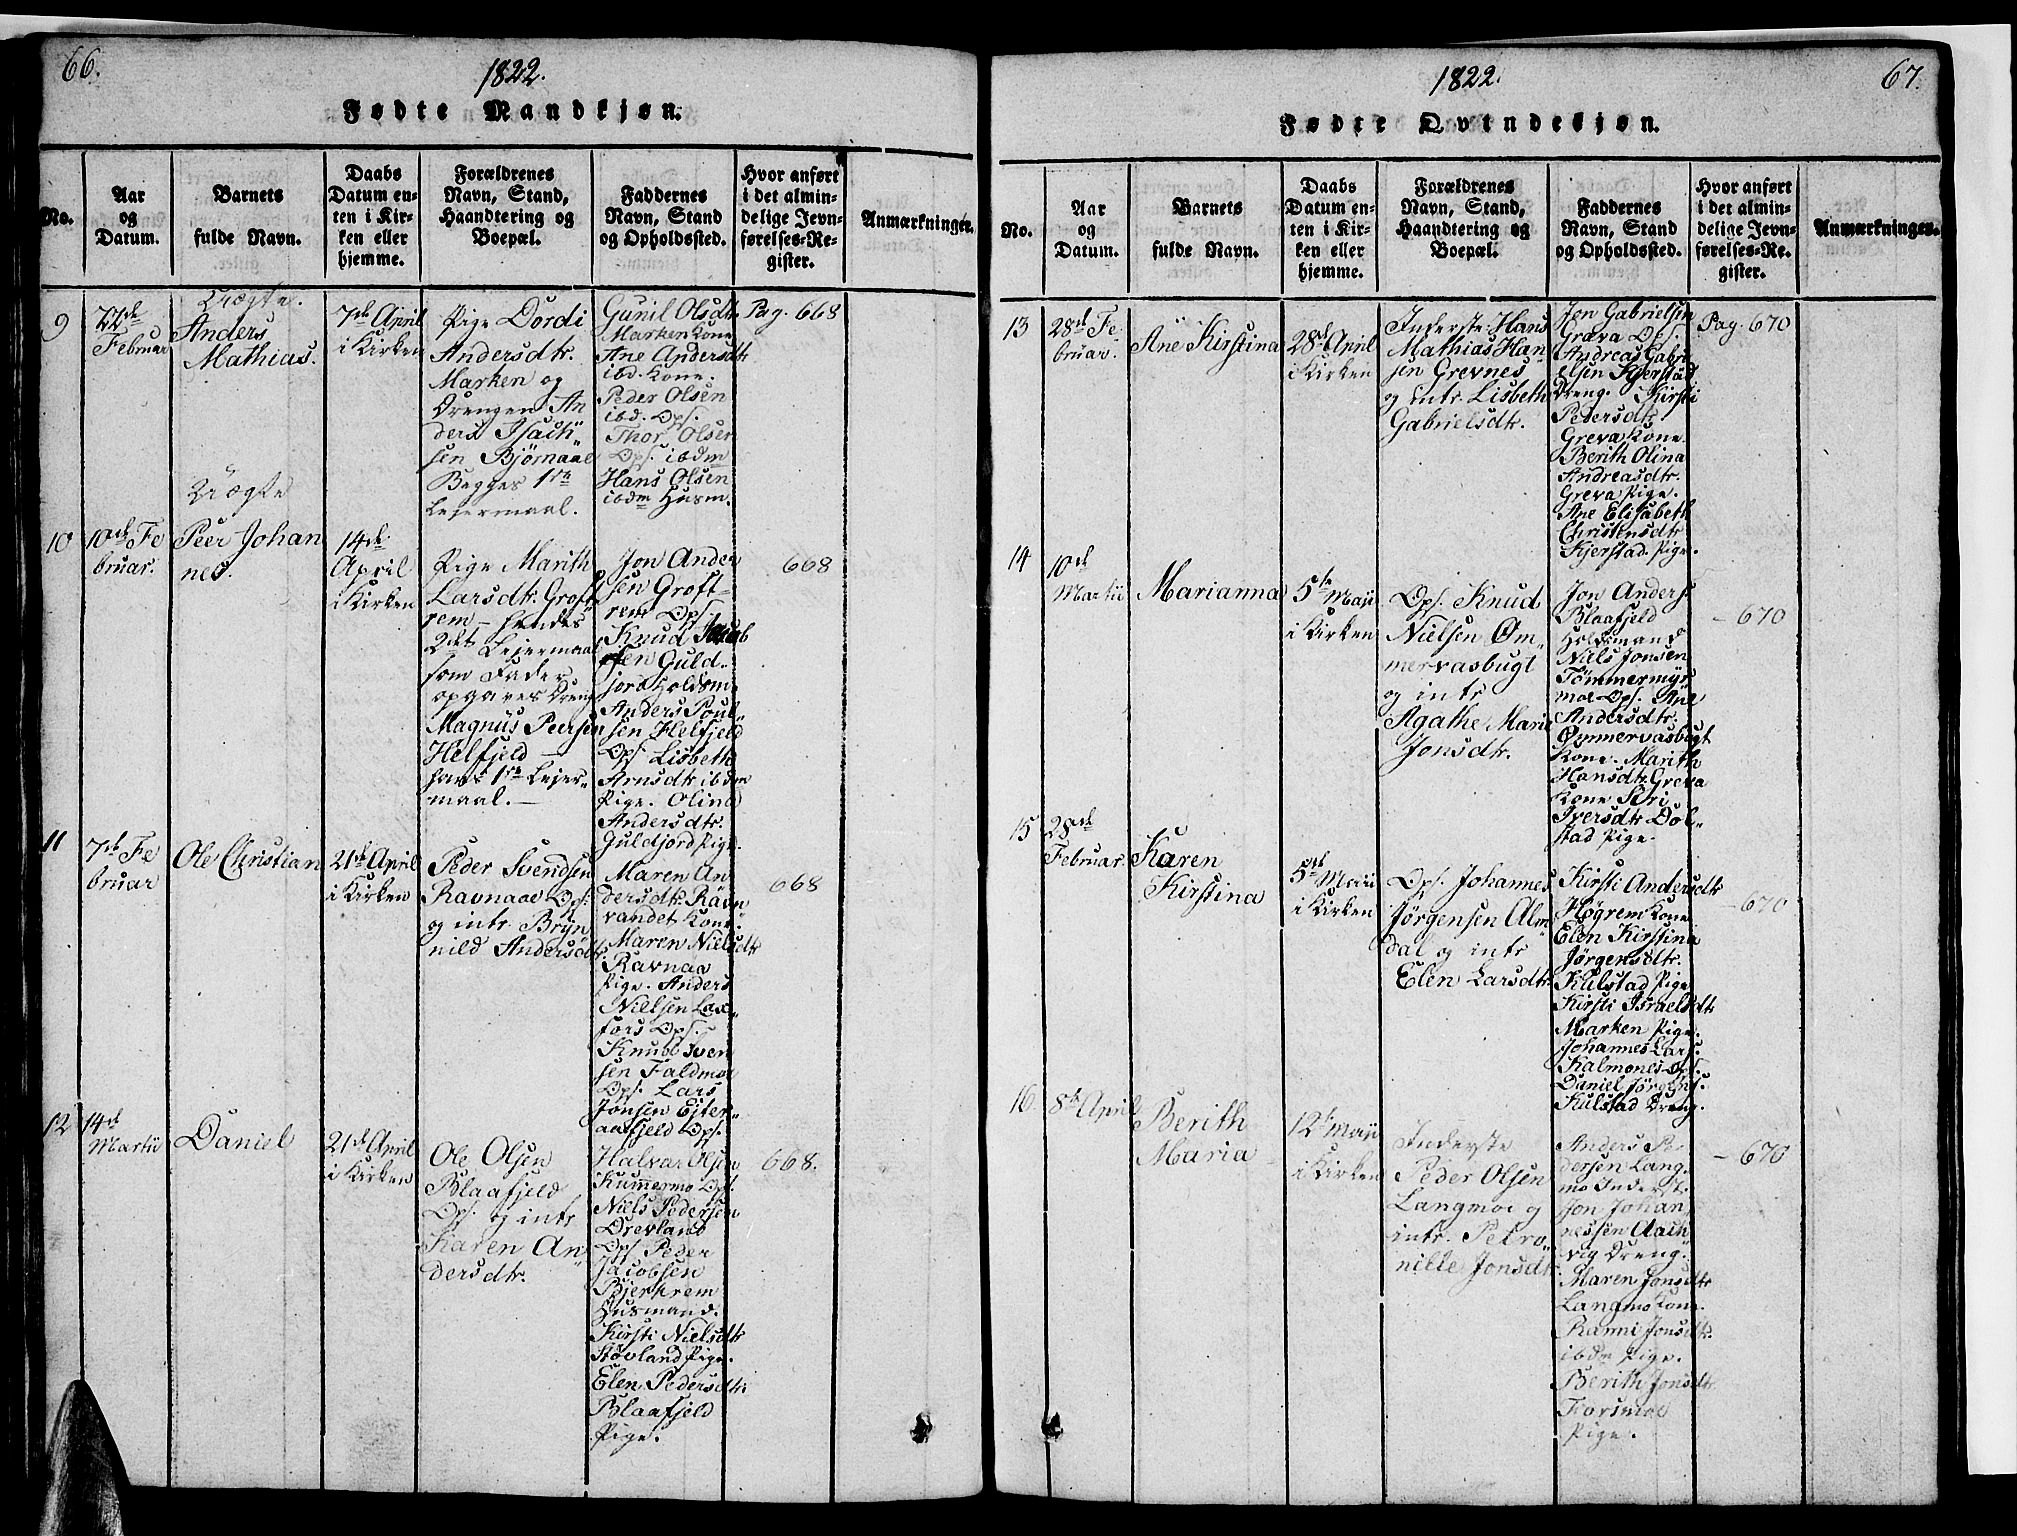 66.
1822.
Fødte Mandkjøn.
No.
Aar
og
Datum.
Barnets
fulde Navn.
Daabs
Datum en-
ten i Kir-
ken eller
hjemme.
Forældrenes
Navn, Stand,
Haandtering og
Boepæl.
Faddernes
Navn, Stand
og Opholdssted.
Hvor anført
i det almin-
delige Jevn-
førelses-Re-
gister.
Anmærkninger.
9
22de
Februar
Uægte.
Anders
Mathias.
7de April
i Kirken
Pige Dordi
Andersdtr.
Marken og
Drengen An
ders Isach„
sen Bjørnaae
Begges 1ste
Lejermaal.
Gunil Olsdtr.
Marken Kone
Ane Andersdtr
ibd. Kone.
Peder Olsen
ibd. Ops.
Thor Olsen
Ops. ibdm
Hans Olsen
ibdm Husm.
Pag. 668
10
10de Fe
bruar.
Uægte
Peer Johan
nes.
14de
April
i Kirken
Pige Marith
Larsdtr. Groft
rem – hendes
2det Lejermaal
som Fader
opgaves Dreng
Magnus Peersen
Helfjeld –
hans 1ste Lejer„
maal. –
Jon Ander
sen Groft-
rem Ops.
Knud Jacob
sen Guld-
jord Holdsm.
Anders Poul„
sen Helfjeld
Ops. Lisbeth
Arnsdtr ibdm
Pige. Olina
Andersdtr.
Guldjord Pige.
668
11
7de Fe
bruar
Ole Christian
21de April
i Kirken
Peder Svendsen
Ravnaae Ops.
og intr Bryn
nild Andersdtr
Maren An
dersdtr. Rävn
vandet Kone.
Maren Nielsdtr
Ravnaa
Pige. Anders
Nielsen Lax„
fors Ops.
Knud Sven
sen Faldmoe
Ops. Lars
Jonsen Ejter„
aafjeld Ops.
668
12
14de
Martii
Daniel
21de April
i Kirken
Ole Olsen
Blaafjeld
Ops. og intr
Karen An„
dersdtr.
Halvar Olsen
Kummermo Ops.
Niels Pedersen
Drevland
Ops. Peder
Jacobsen
Bjerkrem
Husmand.
Kirsti Nielsdtr
Støvland Pige.
Elen Pedersdtr.
Blaafjeld
Pige.
668.
1822.
67.
Fødte Qvindekjøn.
No.
Aar
og
Datum.
Barnets
fulde Navn.
Daabs
Datum en-
ten i Kir-
ken eller
hjemme.
Forældrenes
Navn, Stand,
Haandtering og
Boepæl.
Faddernes
Navn, Stand
og Opholdssted.
Hvor anført
i det almin-
delige Jevn-
førelses-Re-
gister.
Anmærkninger.
13
28de Fe
bruar.
Ane Kirstina
28de April
i Kirken
Inderste Hans
Mathias Han„
sen Grevnes
og intr. Lisbeth
Gabrielsdtr.
Jon Gabrielsen
Græva Ops.
Andreas Gabri
elsen Kjerstad
Dreng. Kirsti
Pedersdtr.
Greva Kone.
Berith Olina
Andreasdtr.
Greva Pige.
Ane Elisabeth
Christensdtr
Kjerstad. Pige.
Pag. 670
14
10de
Martii
Marianna
5te Maji
i Kirken
Ops. Knud
Nielsen Øm-
mervasbugt
og intr
Agathe Marie
Jonsdtr.
Jon Anders.
Blaafjeld
Holdsmand
Niels Jonsen
Tømmermyr
moe Ops. Ane
Andersdtr.
Ømmervasbugt
Kone. Marith
Hansdtr. Greva
Kone Siri
Iversdtr Dol„
stad Pige.
– 670
15
28de
Februar
Karen
Kirstina
5te Maii
i Kirken
Ops. Johannes
Jørgensen Alm
dal og intr
Elen Larsdtr.
Kirsti Andersdtr
Høgrem Kone
Elen Kirstina
Jørgensdtr.
Kulstad Pige
Kirsti Israelsdtr
Marken Pige.
Johannes Lars.
Kalmones Ops.
Daniel Jørgens.
Kulstad Dreng.
– 670
16.
8de April
Berith
Maria
12te Maji
i Kirken
Inderste
Peder Olsen
Langmoe og
intr. Petro„
nille Jonsdtr.
Anders Pe-
dersen Lang.
mo Inderst.
Jon Johan
nessen Aach
vig Dreng.
Maren Jonsdtr
Langmo Kone.
Ranni Jonsdtr.
ibdm Pige.
Berith Jonsdtr
Forsmoe
Pige.
– 670